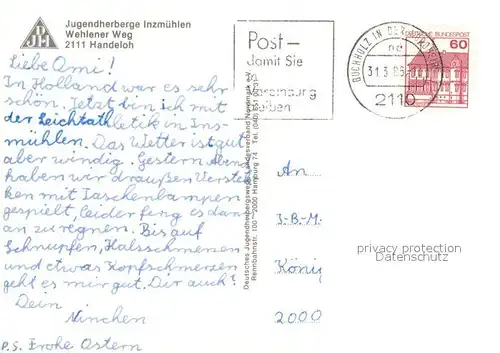 Jugendherberge Inzmühlen
Wehlener Weg
2111 Handeloh
Liebe Omi!
In Holland war es sehr
schön. Jetzt bin ich mit
der Leichtathletik in Inz-
mühlen. Das Wetter ist gut
aber windig. Gestern Abend
haben wir draußen Verstek-
ken mit Taschenlampen
gespielt, leider feng es dan
an zu regnen. Bis auf
Schnupfen, Halsschmerzen
und etwas Kopfschmerzen
geht es mir gut. Dir auch?
Dein
Ninchen
P.S. Frohe Ostern
Deutsches Jugendherbergswerk, Landesverband Nordmark e.V.
Rennbahnstr. 100 2000 Hamburg 74 Tel. (040)
Post-
damit Sie
in
Verbindung
bleiben
BUCHHOLZ IN DER NORDHEIDE
31.3.86
2110
DEUTSCHE BUNDESPOST
60
An
I-B-M
König
2000
privacy protection
Datenschutz